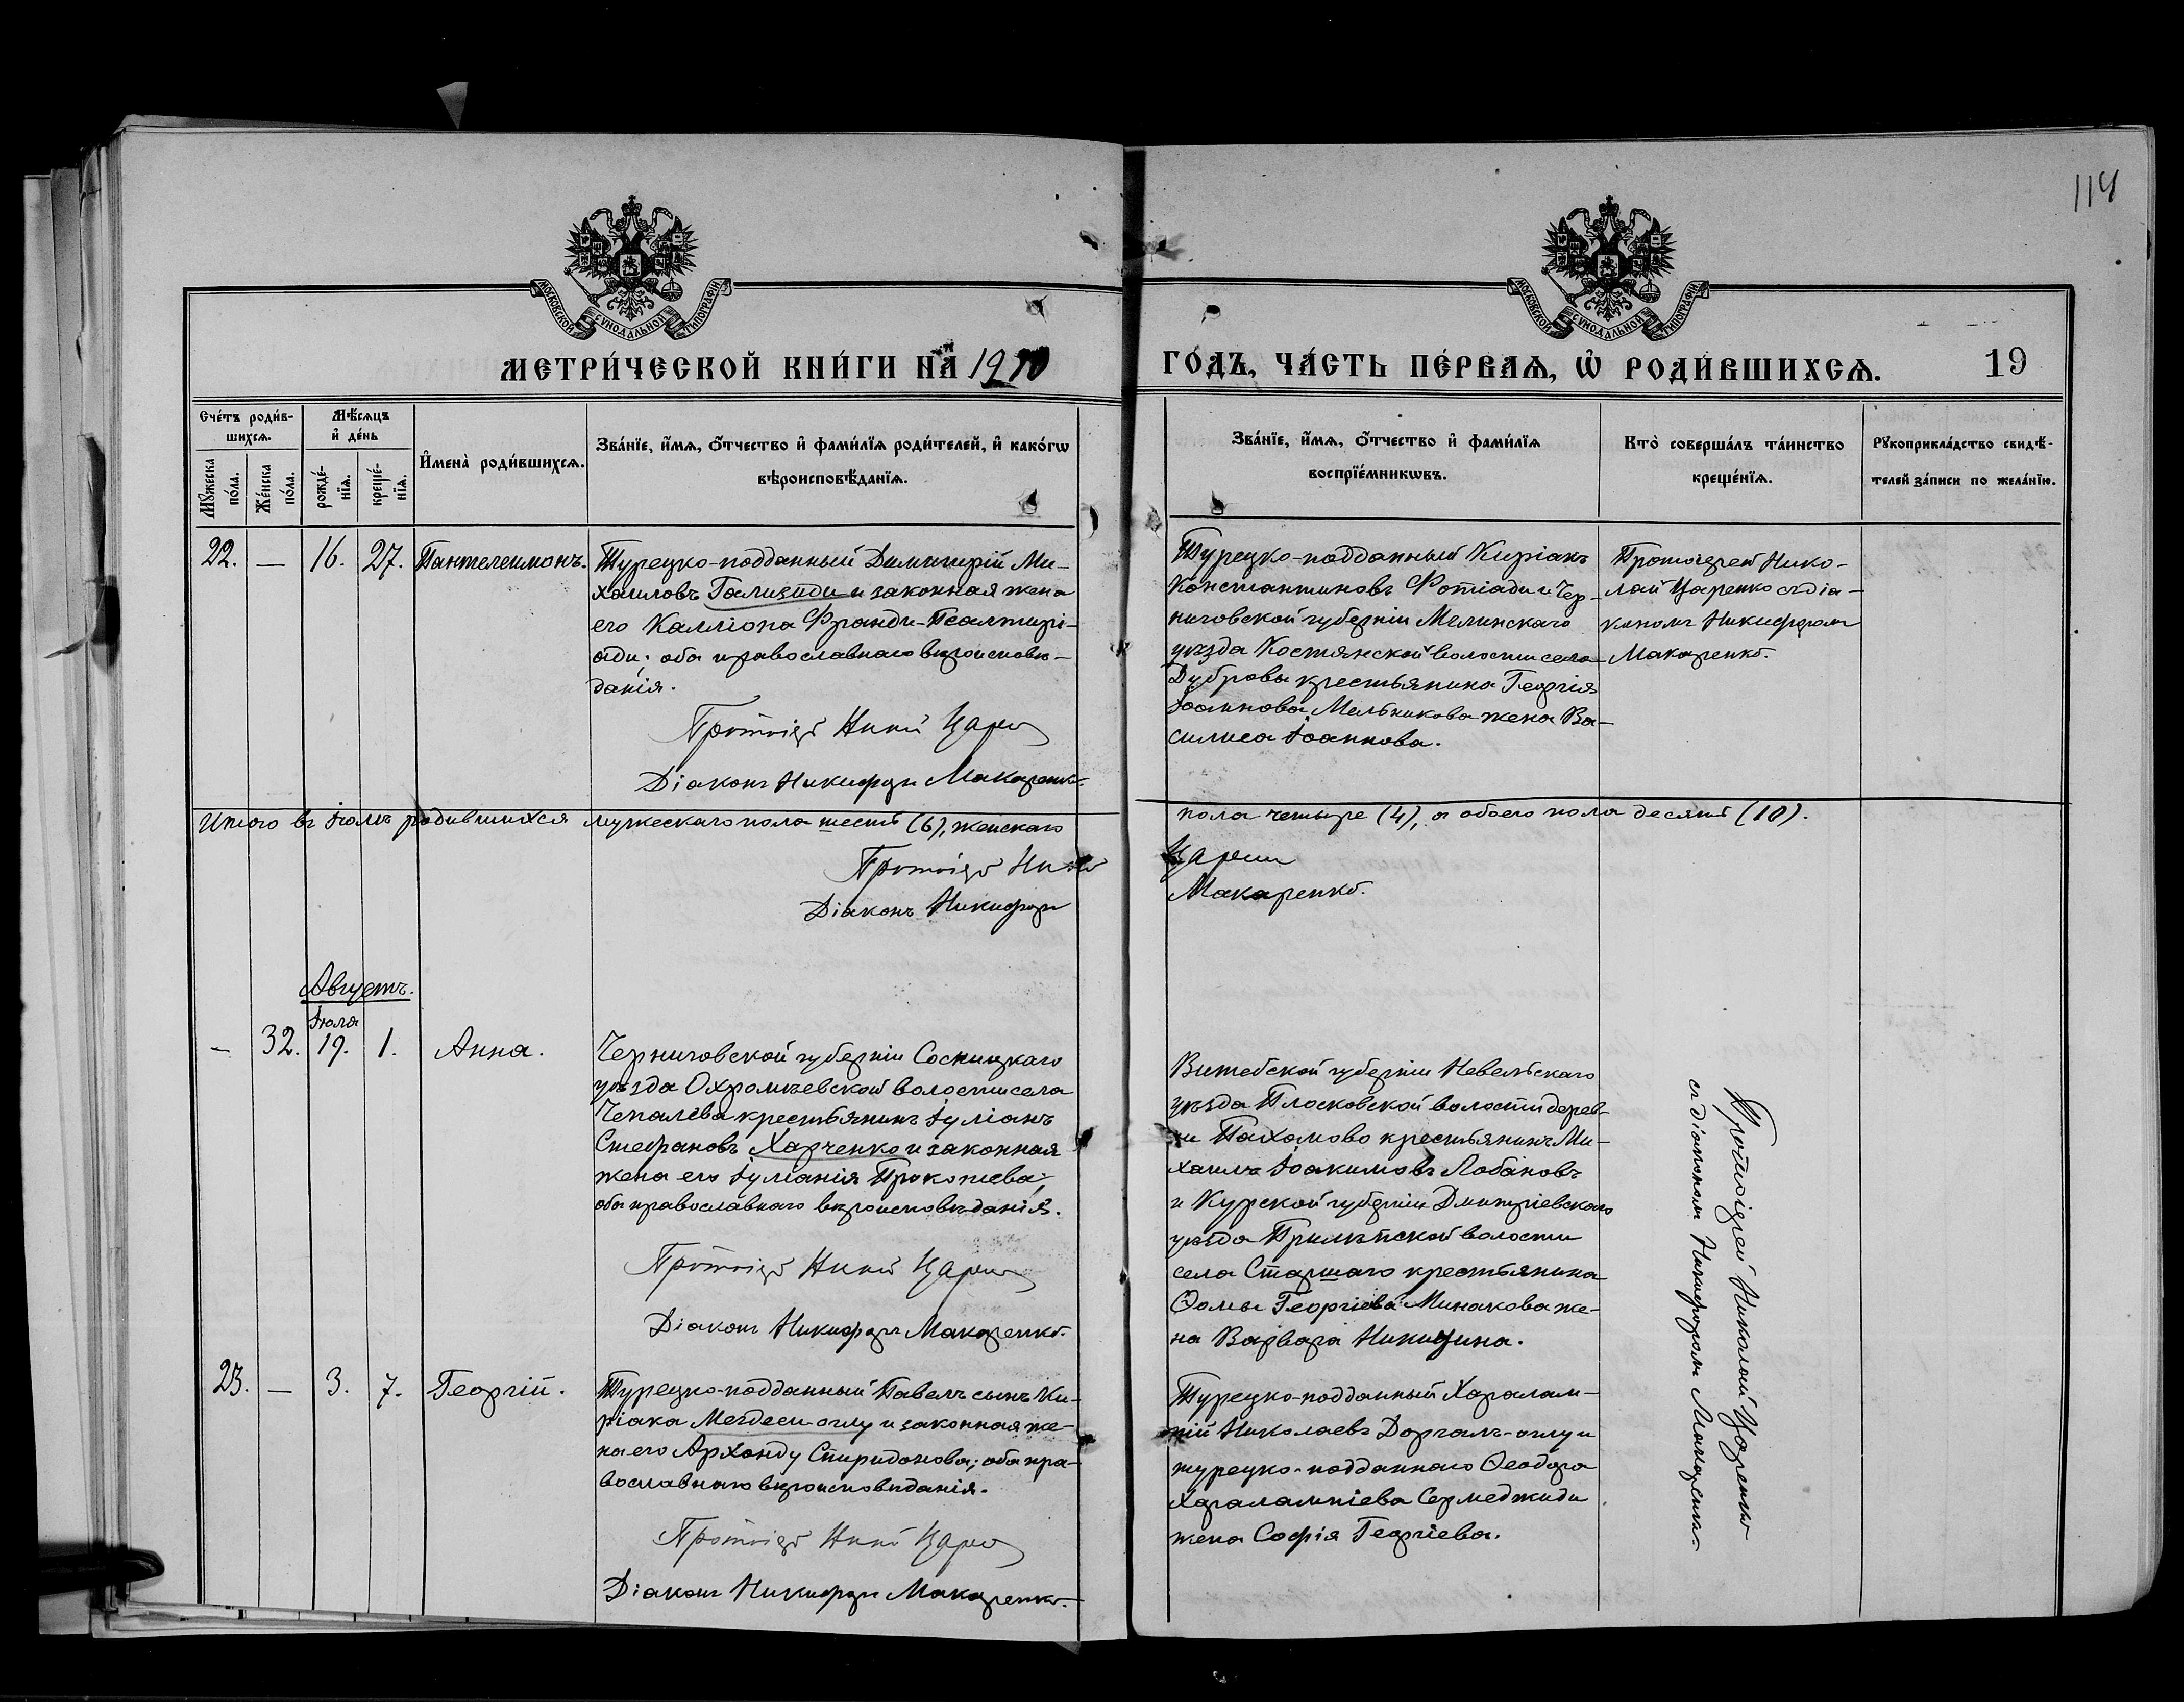 114
МОСКОВСКОЙ СѴНОДАЛЬНОЙ ТИПОГРАФІИ
МОСКОВСКОЙ СѴНОДАЛЬНОЙ ТИПОГРАФІИ
МЕТРИ́ЧЕСКОЙ КНИ́ГИ НА 1910 ГО́ДЪ, ЧА́СТЬ ПЕ́РВАѦ, Ѡ РОДИ́ВШИХСѦ. 19
Сче́тъ роди́в-
шихсѧ.
Мѣ́сѧцъ
и де́нь
Мꙋ́жеска
по́ла.
Же́нска
по́ла.
рожде́-
нїѧ.
креще́-
нїѧ.
Имена̀ роди́вшихсѧ.
Зва́нїе, и́мѧ, ѻ́тчество и фами́лїѧ роди́телей, и како́гѡ
вѣроисповѣ́данїѧ.
Зва́нїе, и́мѧ, ѻ́тчество и фами́лїѧ
воспрїе́мникѡвъ.
Кто̀ соверша́лъ та́инство
креще́нїѧ.
Рꙋкоприкла́дство свидѣ́-
телей за́писи по жела́нїю.
22. — 16. 27. Пантелеимонъ.
Турецко-подданный Димитрій Ми-
хаиловъ Галиѳиди и законная жена
его Калліопа Франди-Псалтирі-
ади; оба православнаго вѣроисповѣ-
данія.
Протоіер Нико Царе
Діаконъ Никифоръ Макаренко.
Турецко-подданный Киріакъ
Константиновъ Фотіади и Чер-
ниговской губерніи Мглинскаго
уѣзда Костянской волости села
Дубровы крестьянина Георгія
Іоаннова Мельникова жена Ва-
силиса Іоаннова.
Протоіерей Нико-
лай Царенко съ діа-
кономъ Никифоромъ
Макаренко.
Итого въ Іюлѣ родившихся мужескаго пола шесть (6), женскаго
пола четыре (4), а обоего пола десять (10).
Протоіер Нико Царен
Діаконъ Никифоръ Макаренко.
Августъ.
Іюля
— 32. 19. 1. Анна.
Черниговской губерніи Сосницкаго
уѣзда Охромѣевской волости села
Чепалева крестьянинъ Іуліанъ
Стефановъ Харченко и законная
жена его Іуліанія Прокопіева;
оба православнаго вѣроисповѣданія.
Протоіер Нико Царе
Діаконъ Никифоръ Макаренко.
Витебской губерніи Невельскаго
уѣзда Плосковской волости дерев-
ни Пахомово крестьянинъ Ми-
хаилъ Іоакимовъ Лобановъ
и Курской губерніи Дмитріевскаго
уѣзда Прилѣпской волости
села Старшаго крестьянина
Ѳомы Георгіева Минакова же-
на Варвара Никитина.
Протоіерей Николай Царенко
съ діакономъ Никифоромъ Макаренко
23. — 3. 7. Георгій.
Турецко-подданный Павелъ сынъ Ки-
ріака Мегдеси-оглу и законная же-
на его Архонду Спиридонова; оба пра-
вославнаго вѣроисповѣданія.
Протоіер Нико Царе
Діаконъ Никифоръ Макаренко.
Турецко-подданный Харалам-
пій Николаевъ Доргалъ-оглу и
турецко-подданнаго Ѳеодора
Харалампіева Сермеджиди
жена Софія Георгіева.